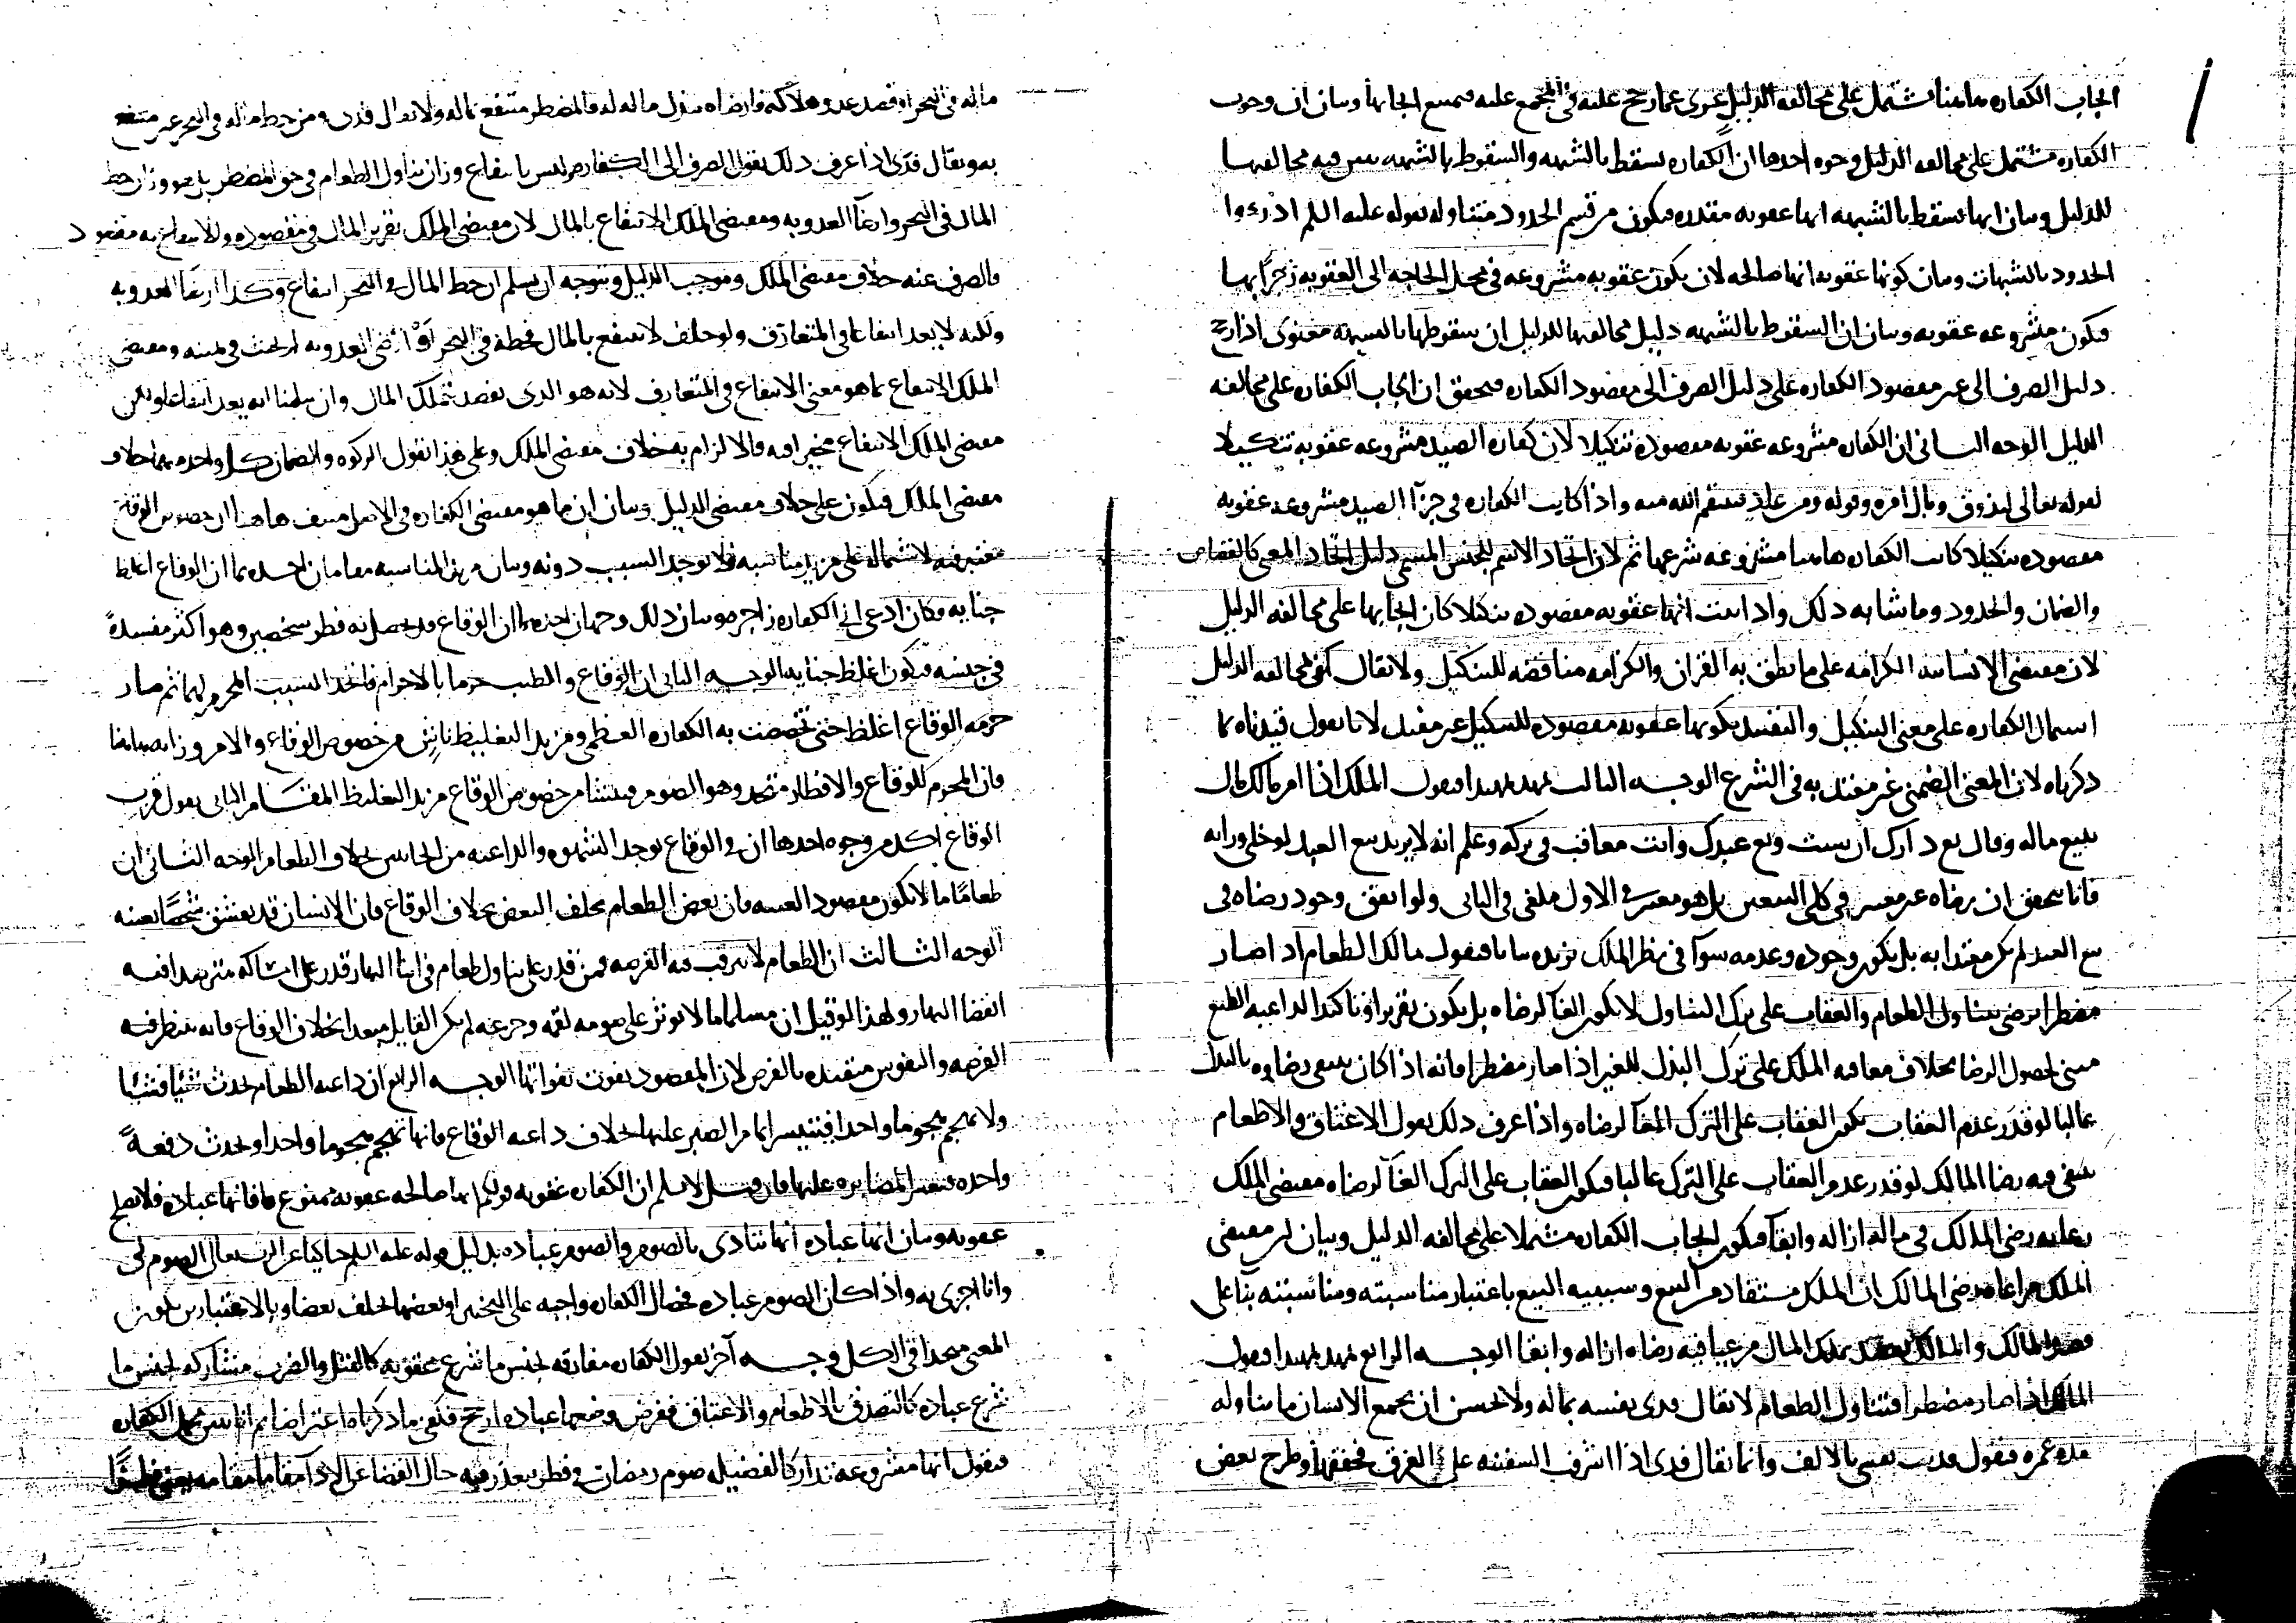 ايجاب الكفاره هاهنا مشتمل على مخالفه الدليل عرى عما رجح عليه في المجمع عليه فيمتنع ايجابها وبيان ان وجوب
الكفاره مشتمل على مخالفه الدليل وجوه احدها ان الكفاره تسقط بالشبهه والسقوط بالشبهه يبين فيه مخالفتها
للدليل وبيان انها تسقط بالشبهه انها عقوبه مقدره فيكون من قسم الحدود متناوله لقوله عليه السلم ادرءوا
الحدود بالشبهات وبيان كونها عقوبه انها صالحه لان يكون عقوبه مشروعه في محل الحاجه الى العقوبه زجرا بها
فيكون مشروعه عقوبه وبيان ان السقوط بالشبهه دليل مخالفتها للدليل ان سقوطها بالشبهه معنوى اذا رجح
دليل الصرف الى غير مقصود الكفاره على دليل الصرف الى مقصود الكفاره فيحقق ان ايجاب الكفاره على مخالفه
الدليل الوجه الثانى ان الكفاره مشروعه عقوبه مقصوده تنكيلا لان كفاره الصيد مشروعه عقوبه تنكيلا
لقوله تعالى ليذوق وبال امره وقوله ومن عاد فينتقم الله منه واذا كانت الكفاره في جزآ الصيد مشروعه عقوبه
مقصوده تنكيلا كانت الكفاره هاهنا مشروعه شرعها ثم لان اتحاد الاسم للجنس المسمى دليل اتحاد المعنى كالقصاص
والضمان والحدود وما شابه ذلك واذا ثبت انها عقوبه مقصوده تنكيلا كان ايجابها على مخالفه الدليل
لان مقتضى الانسانيه الكرامه على ما نطق به القران والكرامه مناقضه للتنكيل ولا يقال كفى مخالفه الدليل
اشتمال الكفاره على معنى التنكيل والتقييد بكونها عقوبه مقصوده للتنكيل غير مفيد لانا نقول قيدناه بما
ذكرناه لان المعنى الضمنى غير معتد به في الشرع الوجه الثالث نمهد تمهيدا فنقول الملك اذا امر مالك مال
ببيع ماله وقال بع دارك ان شئت وبع عبدك وانت معاقب في تركه وعلم انه لا يريد بيع العبد لو خلى ورايه
فانا نتحقق ان رضاه غير معتبر في كلى البيعين بل هو معتبر في الاول ملغى في الثانى ولو اتفق وجود رضاه في
بيع العبد لم يكن معتدا به بل يكون وجوده وعدمه سوآ في نظر الملك نزيده بيانا فنقول مالك الطعام اذا صار
مضطرا يرضى بتناول الطعام والعقاب على ترك التناول لا يكون الغآ لرضاه بل يكون تقريرا وتاكيدا لداعيه الطبع
مبنى لحصول الرضا بخلاف معاقبه الملك على ترك البذل للغير اذا صار مضطرا فانه اذا كان ينتفى رضاوه بالبذل
غالبا لو قدر عدم العقاب يكون العقاب على الترك الغآ لرضاه واذا عرف ذلك نقول الاعتاق والاطعام
ينتفى فيه رضا المالك لو قدر عدم العقاب على الترك غالبا فيكون العقاب على الترك الغآ لرضاه مقتضى الملك
رعايه رضى المالك في ماله ازاله وابقآ فيكون ايجاب الكفاره مشتملا على مخالفه الدليل وبيان ان مقتضى
الملك مراعاه رضى المالك ان الملك مستفاد من البيع وسببيه البيع باعتبار مناسبته ومناسبته بنآ على
قصد المالك والمالك يقصد بملك المال مرعيا فيه رضاه ازاله وابقا الوجه الرابع نمهد تمهيدا فنقول
المالك اذا صار مضطرا فتناول الطعام لا يقال فدى نفسه بماله ولا يحسن ان يجمع الانسان ما تناوله
مده عمره فيقول فديت نفسى بالالف وانما يقال فدى اذا اشرف السفينه على الغرق فخففها وطرح بعض
ماله في البحر او قصد عدو هلاكه فارضاه ببذل ماله له فالمضطر منتفع بماله ولا يقال فدى ومن حط ماله في البحر غير منتفع
به ويقال فدى اذا عرف ذلك نقول الصرف الى الكفاره ليس بانتفاع وزان تناول الطعام في حق المضطر بل هو وزان حط
المال في البحر وارضآ العدو به ومقتضى الملك الانتفاع بالمال لان مقتضى الملك تقرير المال في مقصوده والانتفاع به مقصود
فالصرف عنه خلاف مقتضى الملك وموجب الدليل ونتوجه ان نسلم ان حط المال في البحر انتفاع وكذا ارضآ العدو به
ولكنه لا يعد انتفاعا في المتعارف ولو حلف لا ينتفع بالمال فحطه في البحر او ارضى العدو به لم يحنث في يمينه ومقتضى
الملك الانتفاع بما هو معنى الانتفاع في المتعارف لانه هو الذى يقصد بتملك المال وان سلمنا انه يعد انتفاعا ولكن
مقتضى الملك الانتفاع مخيرا فيه فالالزام به خلاف مقتضى الملك وعلى هذا نقول الزكوه والضمان كل واحد منهما خلاف
مقتضى الملك فيكون على خلاف مقتضى الدليل وبيان ان ما هو مقتضى الكفاره في الاصل منتف هاهنا ان خصوص الوقاع
معتبر فيه لاشتماله على مزيد مناسبه فلا توجد السبب دونه وبيان مزيد المناسبه مقامان احدهما ان الوقاع اغلظ
جنايه فكان ادعى الى الكفاره زاجره وبيان ذلك وجهان احدهما ان الوقاع قد يحصل به فطر شخصين وهو اكثر مفسدةً
في جنسه فيكون اغلظ جنايه الوجه الثانى ان الوقاع والطيب حرما بالاحرام فاتحد السبب المحرم لهما ثم صار
حرمه الوقاع اغلظ حتى تخصصت به الكفاره العظمى ومزيد التغليظ ناش من خصوص الوقاع والامر وزانه هاهنا
فان المحرم للوقاع والافطار متحد وهو الصوم فينشا من خصوص الوقاع مزيد التغليظ المقام الثانى نقول قرب
الوقاع اكد من وجوه احدها ان في الوقاع توجد الشهوه والداعيه من الجانبين بخلاف الطعام الوجه الثانى ان
طعامًا ما لا يكون مقصود العينه فان بعض الطعام يخلف البعض بخلاف الوقاع فان الانسان قد يعشق شخصًا بعينه
الوجه الثالث ان الطعام لا يترقب فيه الفرصه فمن قدر على تناول طعام في اثنا النهار قدر على امساكه مترصدا فيه
انقضا النهار ولهذا لو قيل ان مسلما ما لا يوثر على صومه لقمه وجرعه لم يكن القايل مبعدا بخلاف الوقاع فانه ينتظر فيه
الفرصه والنفوس متقيده بالفرص لان المقصود يفوت بفواتها الوجه الرابع ان داعيه الطعام تحدث شيئا فشيئا
ولا تهجم هجوما واحدا فيتيسر انما الصبر عليها بخلاف داعيه الوقاع فانها تهجم هجوما واحدا وتحدث دفعةً
واحده فيتعسر المصابره عليها فان قيل لا نسلم ان الكفاره عقوبه قولكم انها صالحه عقوبه ممنوع فانها عباده فلا تصلح
عقوبه وبيان انها عباده انها تتادى بالصوم والصوم عباده بدليل قوله عليه السلم حاكيا عن الرب تعالى الصوم لى
وانا اجزى به واذا كان الصوم عباده فخصال الكفاره واجبه على التخيير او بعضها يخلف بعضا وبالاعتبارين يكون
المعنى متحدا في الكل وجه آخر نقول الكفاره مفارقه لجنس ما شرع عقوبه كالقتل والضرب مشاركه لجنس ما
شرع عباده كالتصدق بالاطعام والاعتاق ففرض وضعها عباده ارجح فيكفى ما ذكرناه اعتراضا ثم انا نبين محمل الكفاره
فنقول انها مشروعه تداركا لفضيله صوم رمضان في فطر يتعذر فيه حال القضا عن الادا مقاما مقامه